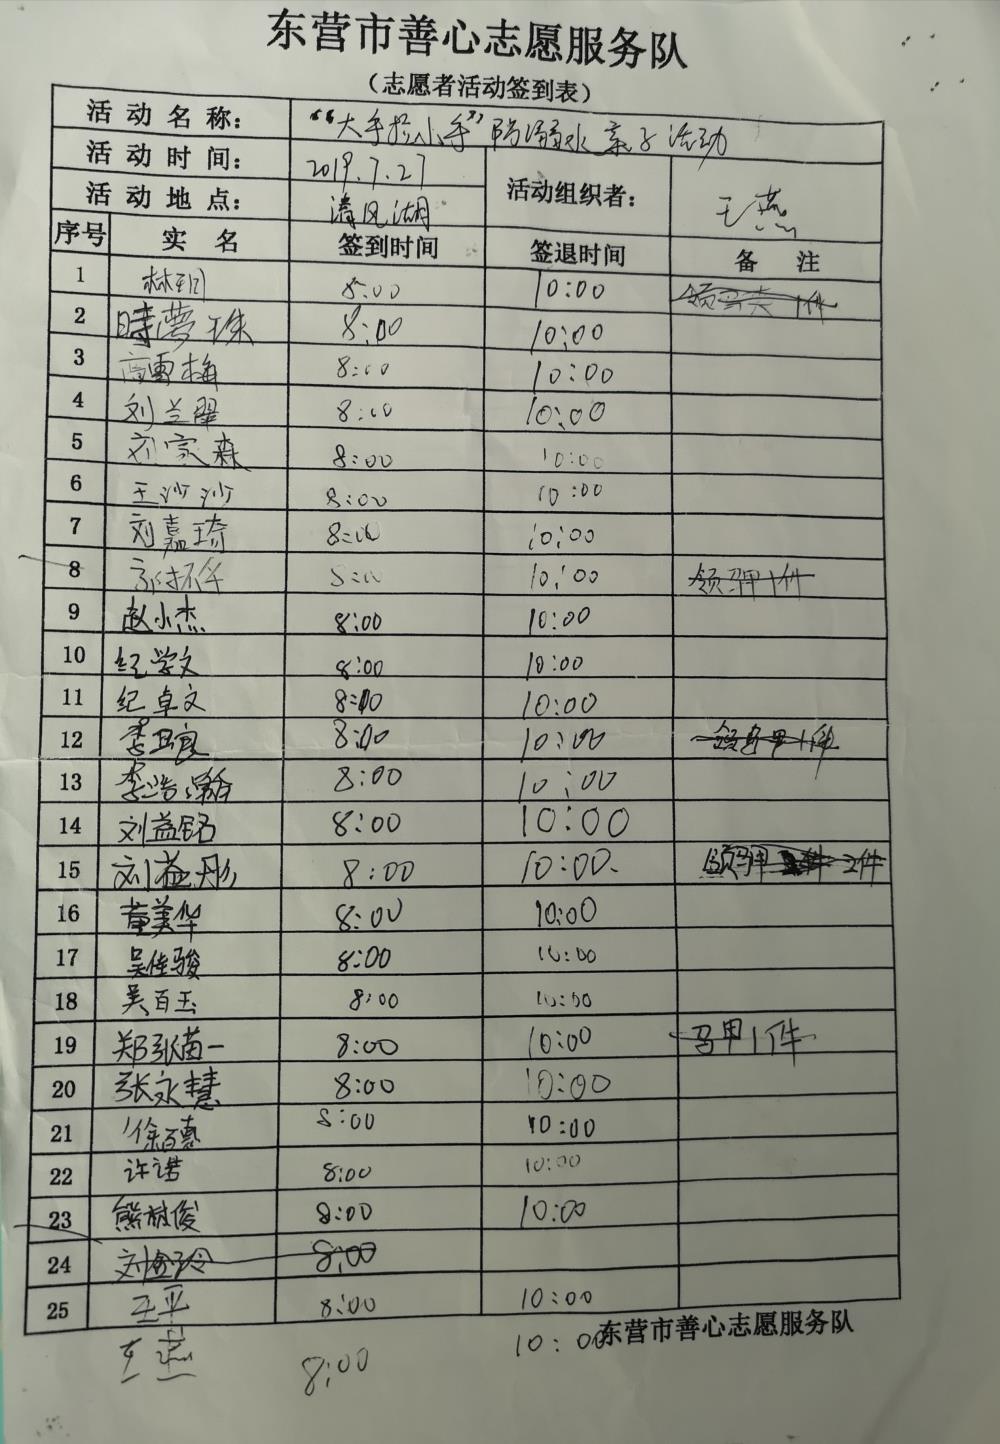 东营市善心志愿服务队
（志愿者活动签到表）
活动名称： “大手拉小手”防溺水亲子活动
活动时间： 2019.7.27 活动组织者： 王燕
活动地点： 清风湖
序号 实名 签到时间 签退时间 备注
1 8:00 10:00
2 時夢珠 8:00 10:00
3 高雪梅 8:00 10:00
4 刘兰翠 8:00 10:00
5 刘家森 8:00 10:00
6 王沙沙 8:00 10:00
7 刘嘉琦 8:00 10:00
8 8:00 10:00 领马甲1件
9 赵小杰 8:00 10:00
10 纪学文 8:00 10:00
11 纪卓文 8:00 10:00
12 李卫良 8:00 10:00 领马甲1件
13 李浩瀚 8:00 10:00
14 刘益铭 8:00 10:00
15 刘益彤 8:00 10:00 领马甲 2件
16 董美华 8:00 10:00
17 吴佳骏 8:00 10:00
18 吴百玉 8:00 10:00
19 郑张苗一 8:00 10:00 马甲1件
20 张永慧 8:00 10:00
21 徐百惠 8:00 10:00
22 许诺 8:00 10:00
23 熊树俊 8:00 10:00
24 刘金玲 8:00
25 王平 8:00 10:00
王燕 8:00 10:00
东营市善心志愿服务队